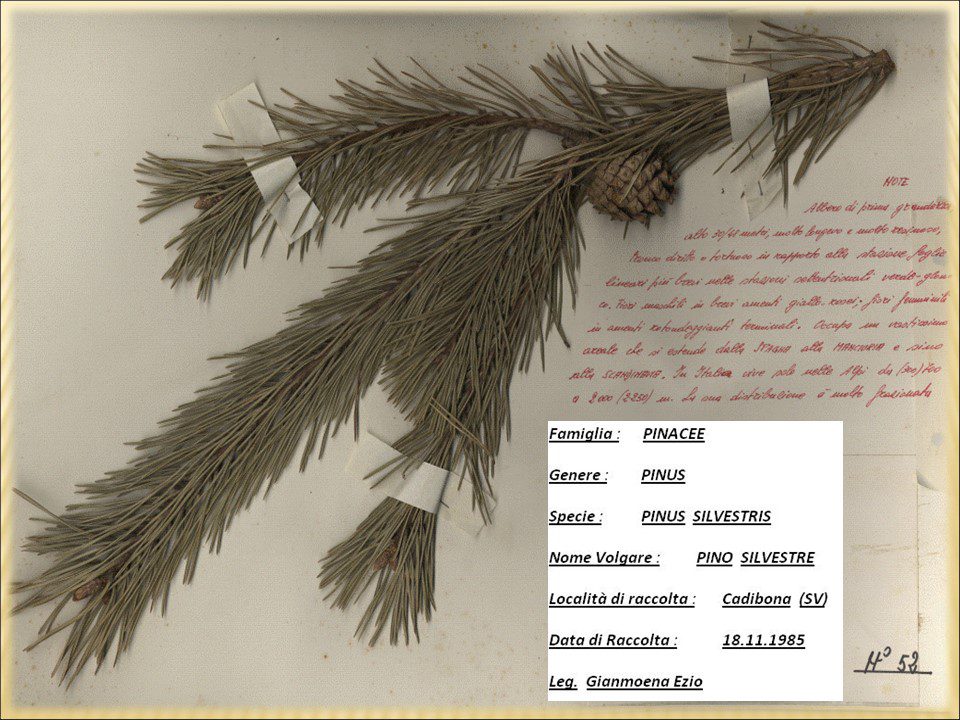 NOTE
Albero di prima grandezza
alto 30/45 metri, molto longevo e molto resinoso,
tronco diritto o tortuoso in rapporto alla stazione, foglie
lineari più brevi nelle stazioni settentrionali verde-glau-
co. Fiori maschili in brevi amenti giallo-rosei; fiori femminili
in amenti rotondeggianti terminali. Occupa un vastissimo
areale che si estende dalla SPAGNA alla MANCIURIA e sino
alla SCANDINAVIA. In Italia vive solo nelle Alpi da (300)700
a 2000 (2250) m. La sua distribuzione è molto frazionata
Famiglia : PINACEE
Genere : PINUS
Specie : PINUS SILVESTRIS
Nome Volgare : PINO SILVESTRE
Località di raccolta : Cadibona (SV)
Data di Raccolta : 18.11.1985
Leg. Gianmoena Ezio
N° 52